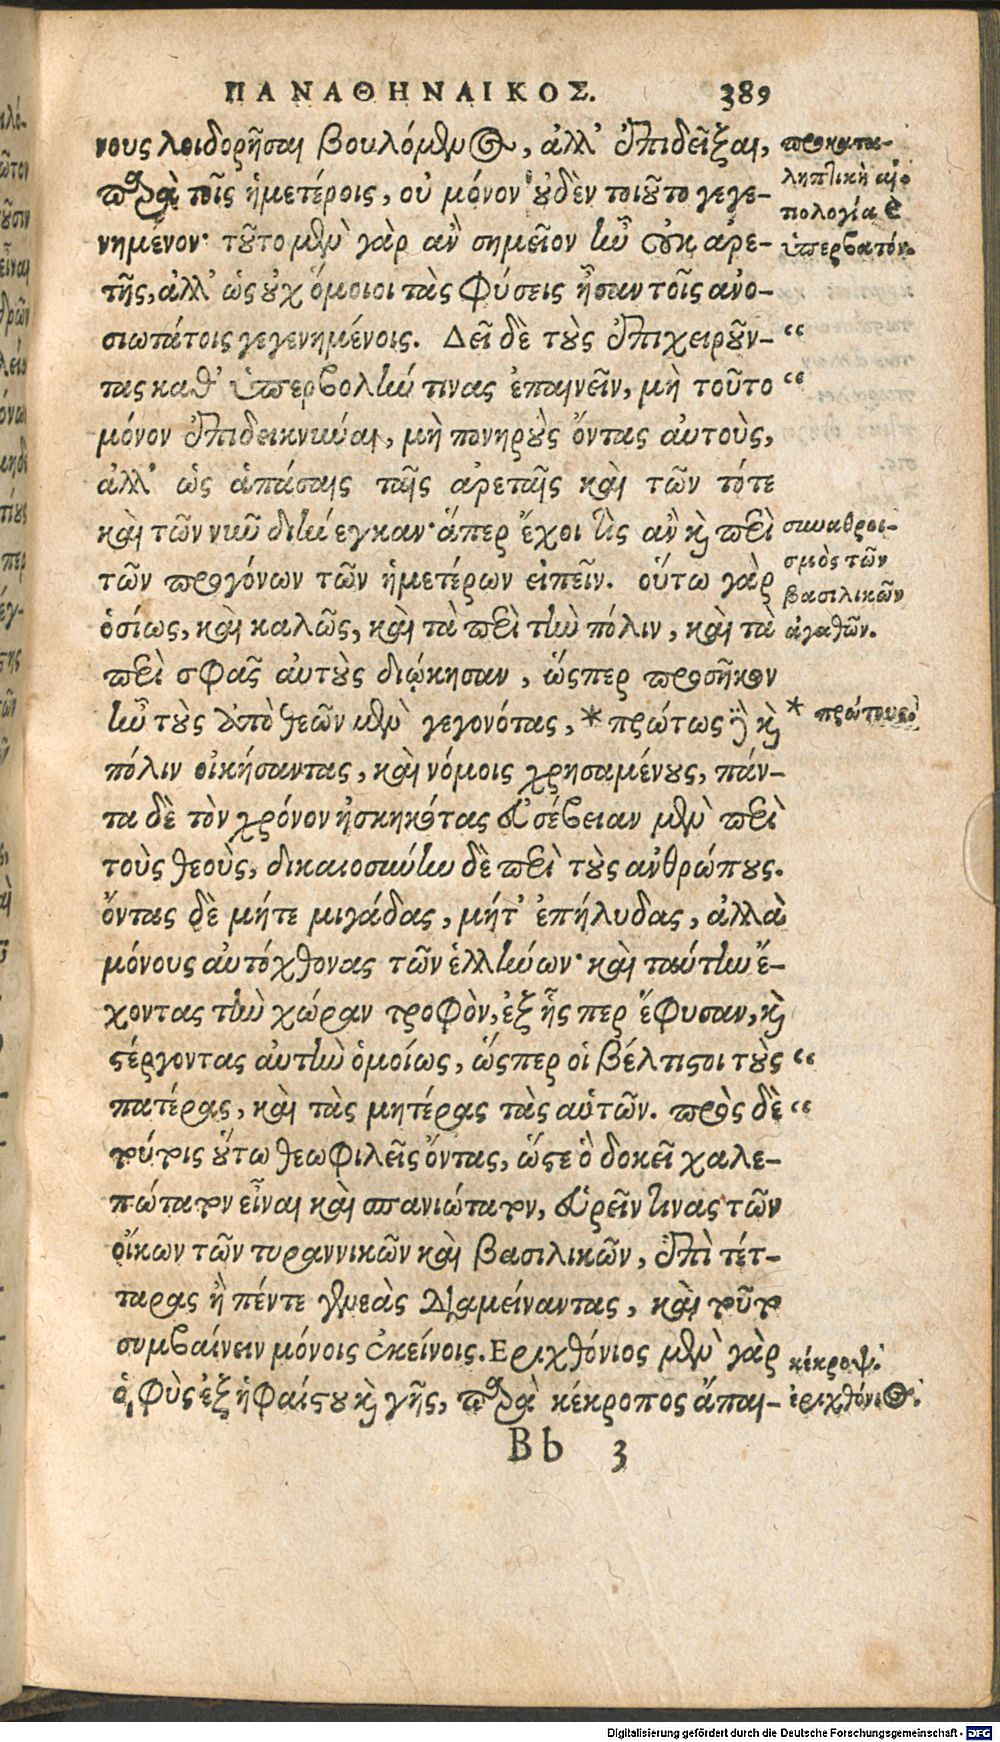 ΠΑΝΑΘΗΝΑΙΚΟΣ. 389
νους λοιδορῆσαι βουλόμενος, ἀλλ' ἐπιδεῖξαι,
παρὰ τοῖς ἡμετέροις, οὐ μόνον οὐδὲν τοιοῦτο γεγε-
νημένον· τοῦτο μὲν γὰρ ἂν σημεῖον ἦν οὐκ ἀρε-
τῆς, ἀλλ' ὡς οὐχ ὅμοιοι τὰς φύσεις ἦσαν τοῖς ἀνο-
σιωτάτοις γεγενημένοις. Δεῖ δὲ τοὺς ἐπιχειροῦν- “
τας καθ' ὑπερβολήν τινας ἐπαινεῖν, μὴ τοῦτο “
μόνον ἐπιδεικνύναι, μὴ πονηροὺς ὄντας αὐτοὺς,
ἀλλ' ὡς ἁπάσαις ταῖς ἀρεταῖς καὶ τῶν τότε
καὶ τῶν νῦν διήνεγκαν· ἅπερ ἔχοι τις ἂν καὶ περὶ
τῶν προγόνων τῶν ἡμετέρων εἰπεῖν. οὕτω γὰρ
ὁσίως, καὶ καλῶς, καὶ τὰ περὶ τὴν πόλιν, καὶ τὰ
περὶ σφᾶς αὐτοὺς διῴκησαν, ὥσπερ προσῆκον
ἦν τοὺς ἀπὸ θεῶν μὲν γεγονότας, * πρώτως δὲ καὶ
πόλιν οἰκήσαντας, καὶ νόμοις χρησαμένους, πάν-
τα δὲ τὸν χρόνον ἠσκηκότας εὐσέβειαν μὲν περὶ
τοὺς θεοὺς, δικαιοσύνην δὲ περὶ τοὺς ἀνθρώπους.
ὄντας δὲ μήτε μιγάδας, μήτ' ἐπήλυδας, ἀλλὰ
μόνους αὐτόχθονας τῶν ἑλλήνων· καὶ ταύτην ἔ-
χοντας τὴν χώραν τροφὸν, ἐξ ἧς περ ἔφυσαν, καὶ
στέργοντας αὐτὴν ὁμοίως, ὥσπερ οἱ βέλτιστοι τοὺς “
πατέρας, καὶ τὰς μητέρας τὰς αὑτῶν. πρὸς δὲ “
τούτοις οὕτω θεωφιλεῖς ὄντας, ὥστε ὃ δοκεῖ χαλε-
πώτατον εἶναι καὶ σπανιώτατον, εὑρεῖν τινας τῶν
οἴκων τῶν τυραννικῶν καὶ βασιλικῶν, ἐπὶ τέτ-
ταρας ἢ πέντε γενεὰς διαμείναντας, καὶ τοῦτο
συμβαίνειν μόνοις ἐκείνοις. Εριχθόνιος μὲν γὰρ
ὁ φὺς ἐξ ἡφαίστου καὶ γῆς, παρὰ κέκροπος ἄπαι-
Bb 3
προκατα-
ληπτικὴ ἀπο
πολογία καὶ
ὑπερβατόν.
συναθροι-
σμὸς τῶν
βασιλικῶν
ἀγαθῶν.
* πρώτους
κέκροψ.
ἐριχθόνιος.